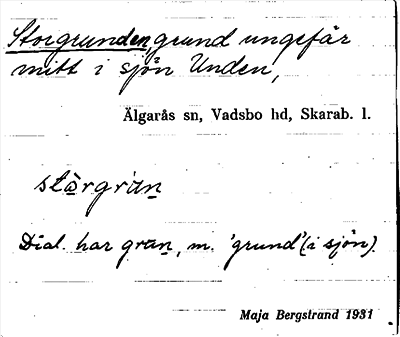 Storgrunden, grund ungefär
mitt i sjön Unden,
Älgarås sn, Vadsbo hd, Skarab. l.
stòrgrùn
Dial. har grun, m. 'grund' (i sjön).
Maja Bergstrand 1931